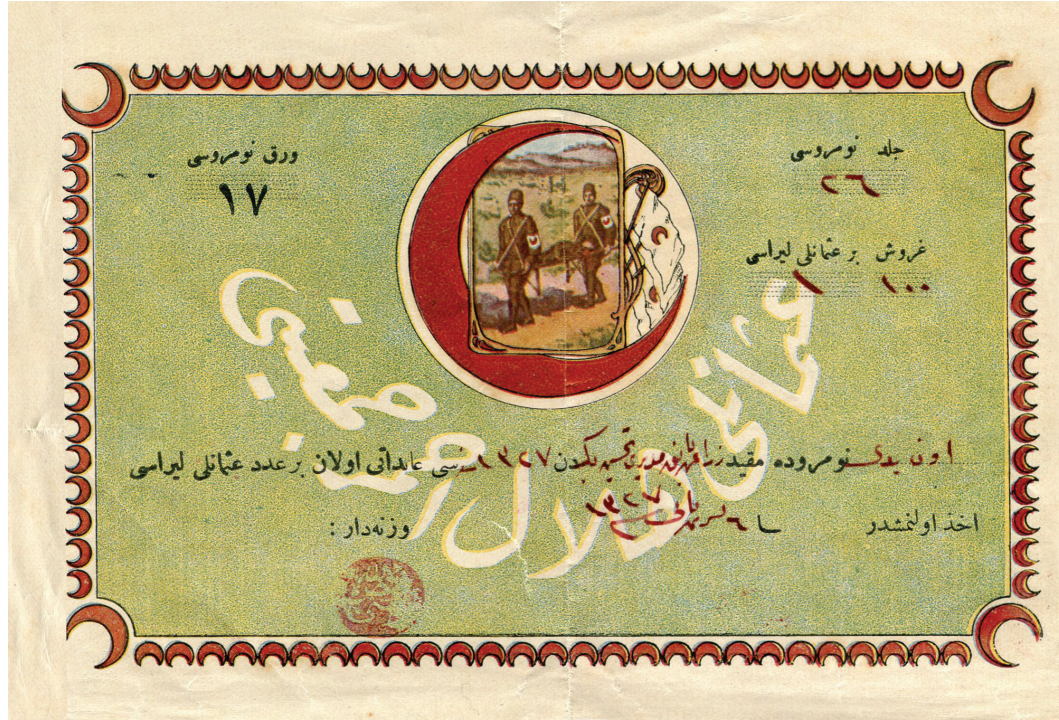 جلد نومروسی
٢٦
ورق نومروسی
١٧
غروش بر عثمانلی لیراسی
١٠٠ ١
عثمانلی هلال احمر جمعیتی
اون یدی نومروده مقید بكدن ١٣٢٧ سی عائداتی اولان بر عدد عثمانلی لیراسی
اخذ اولنمشدر ١٣٢٧ وزنه‌دار :